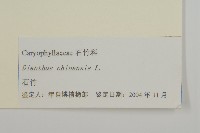 Caryophyllaceae 石竹科
Dianthus chinensis L.
石竹
鉴定人: 植物 鉴定日期: 2004 年 11 月